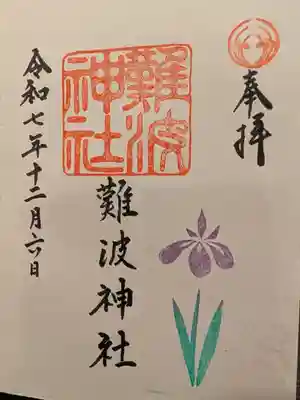 奉拝
難波神社
難波神社
令和七年十二月六日